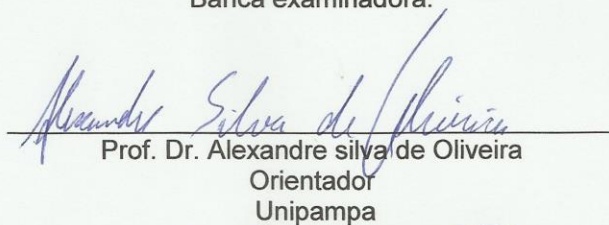 Banca examinadora:
Alexandre Silva de Oliveira
Prof. Dr. Alexandre silva de Oliveira
Orientador
Unipampa